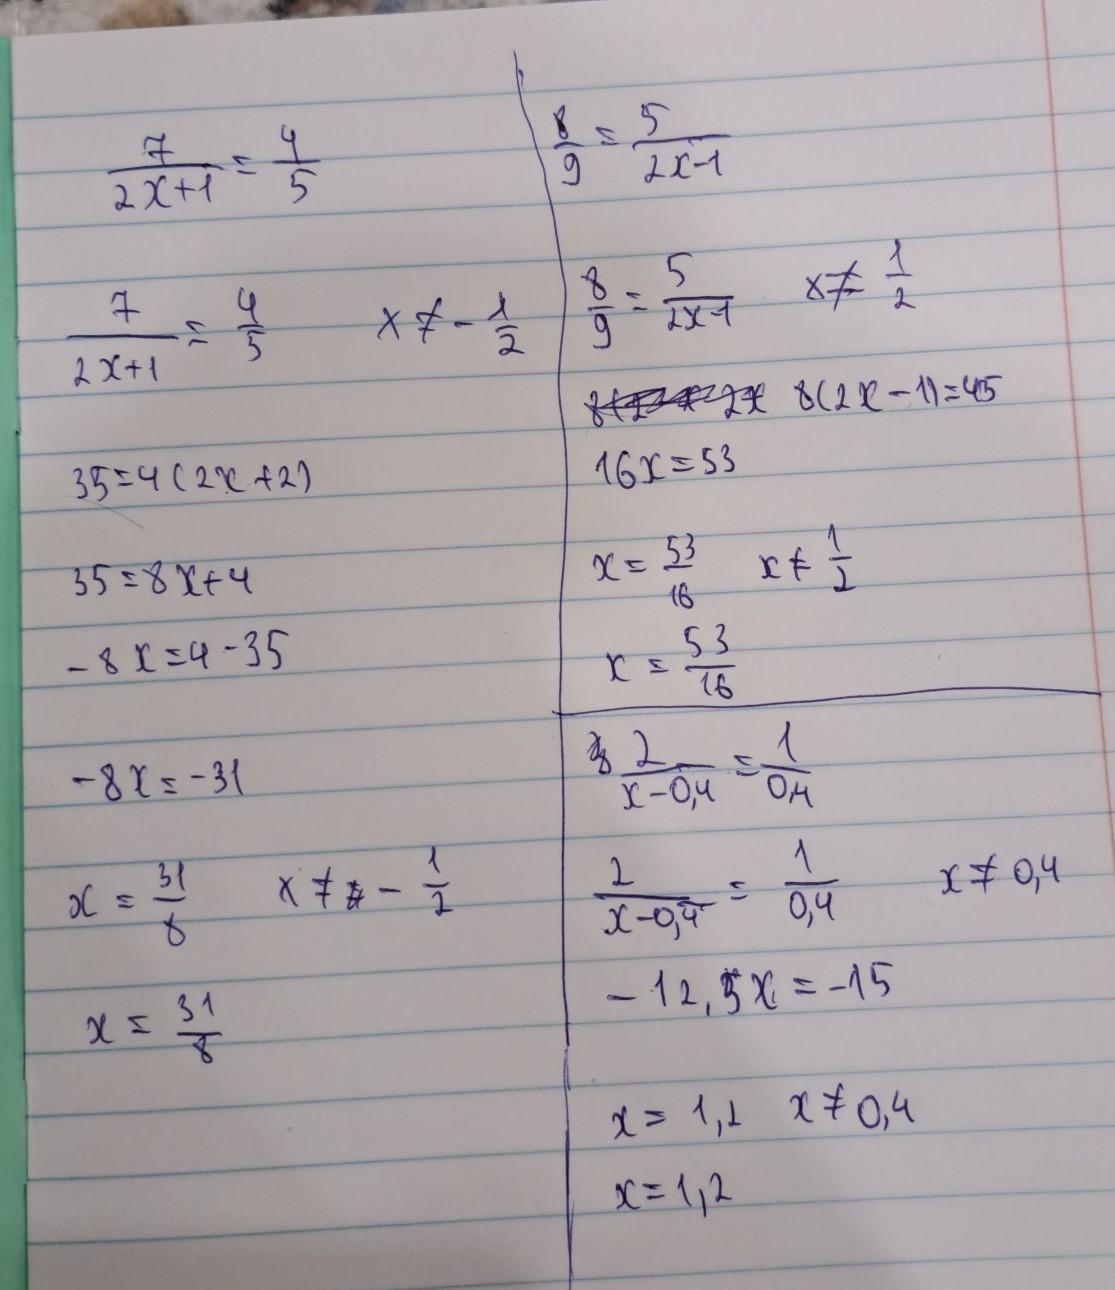 7/(2x+1) = 4/5
7/(2x+1) = 4/5 x ≠ -1/2
35=4(2x+2)
35=8x+4
-8x=4-35
-8x=-31
x = 31/8 x ≠ -1/2
x = 31/8
8/9 = 5/(2x-1)
8/9 = 5/(2x-1) x ≠ 1/2
8(2x-1)=45
16x=53
x = 53/16 x ≠ 1/2
x = 53/16
2/(x-0,4) = 1/0,4
2/(x-0,4) = 1/0,4 x ≠ 0,4
-12,5x = -15
x = 1,2 x ≠ 0,4
x = 1,2